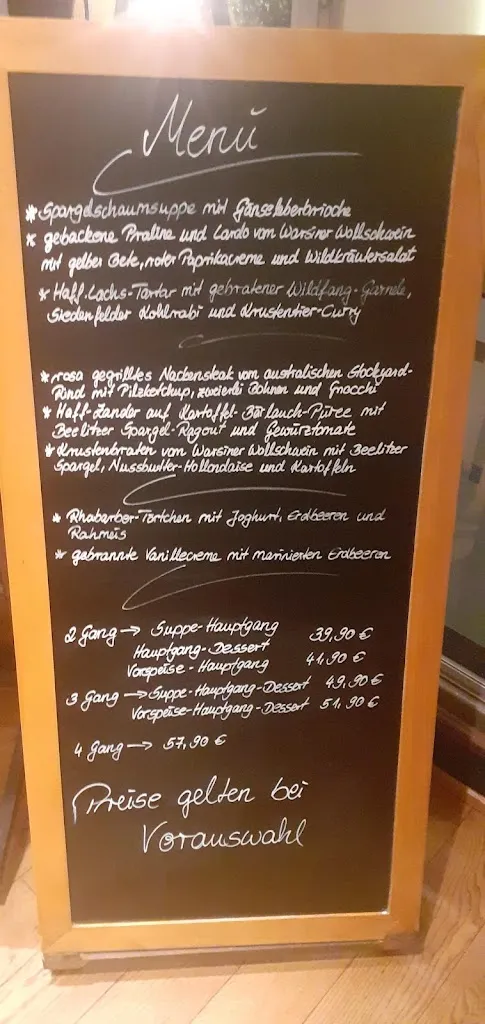 Menü
* Spargelschaumsuppe mit Gänseleberbrioche
* gebackene Praline und Lardo vom Warsiner Wollschwein
mit gelber Bete, roter Paprikacreme und Wildkräutersalat
* Haff-Lachs-Tartar mit gebratener Wildfang-Garnele,
Siedenfelder Kohlrabi und Krustentier-Curry
* rosa gegrilltes Nackensteak vom australischen Stockyard-
Rind mit Pilzketchup, zweierlei Bohnen und Gnocchi
* Haff-Zander auf Kartoffel-Bärlauch-Püree mit
Beelitzer Spargel-Ragout und Gewürztomate
* Krustenbraten vom Warsiner Wollschwein mit Beelitzer
Spargel, Nussbutter-Hollandaise und Kartoffeln
* Rhabarber-Törtchen mit Joghurt, Erdbeeren und
Rahmeis
* gebrannte Vanillecreme mit marinierten Erdbeeren
2 Gang → Suppe-Hauptgang 39,90 €
Hauptgang-Dessert
Vorspeise-Hauptgang 41,90 €
3 Gang → Suppe-Hauptgang-Dessert 49,90 €
Vorspeise-Hauptgang-Dessert 51,90 €
4 Gang → 57,90 €
Preise gelten bei
Vorauswahl